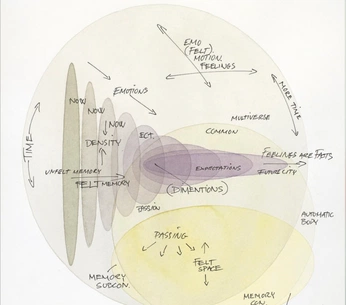 EMO
(FELT)
MOTION
FEELINGS
MORE TIME
EMOTIONS
NOW
NOW
NOW
TIME
DENSITY
ECT.
MULTIVERSE
COMMON
UNFELT MEMORY
FELT MEMORY
EXPECTATIONS
FEELINGS ARE FACTS
FUTURE CITY
(DIMENTIONS)
PASSING
FELT
SPACE
AUTOMATIC
BODY
MEMORY
SUBCON.
MEMORY
CON.